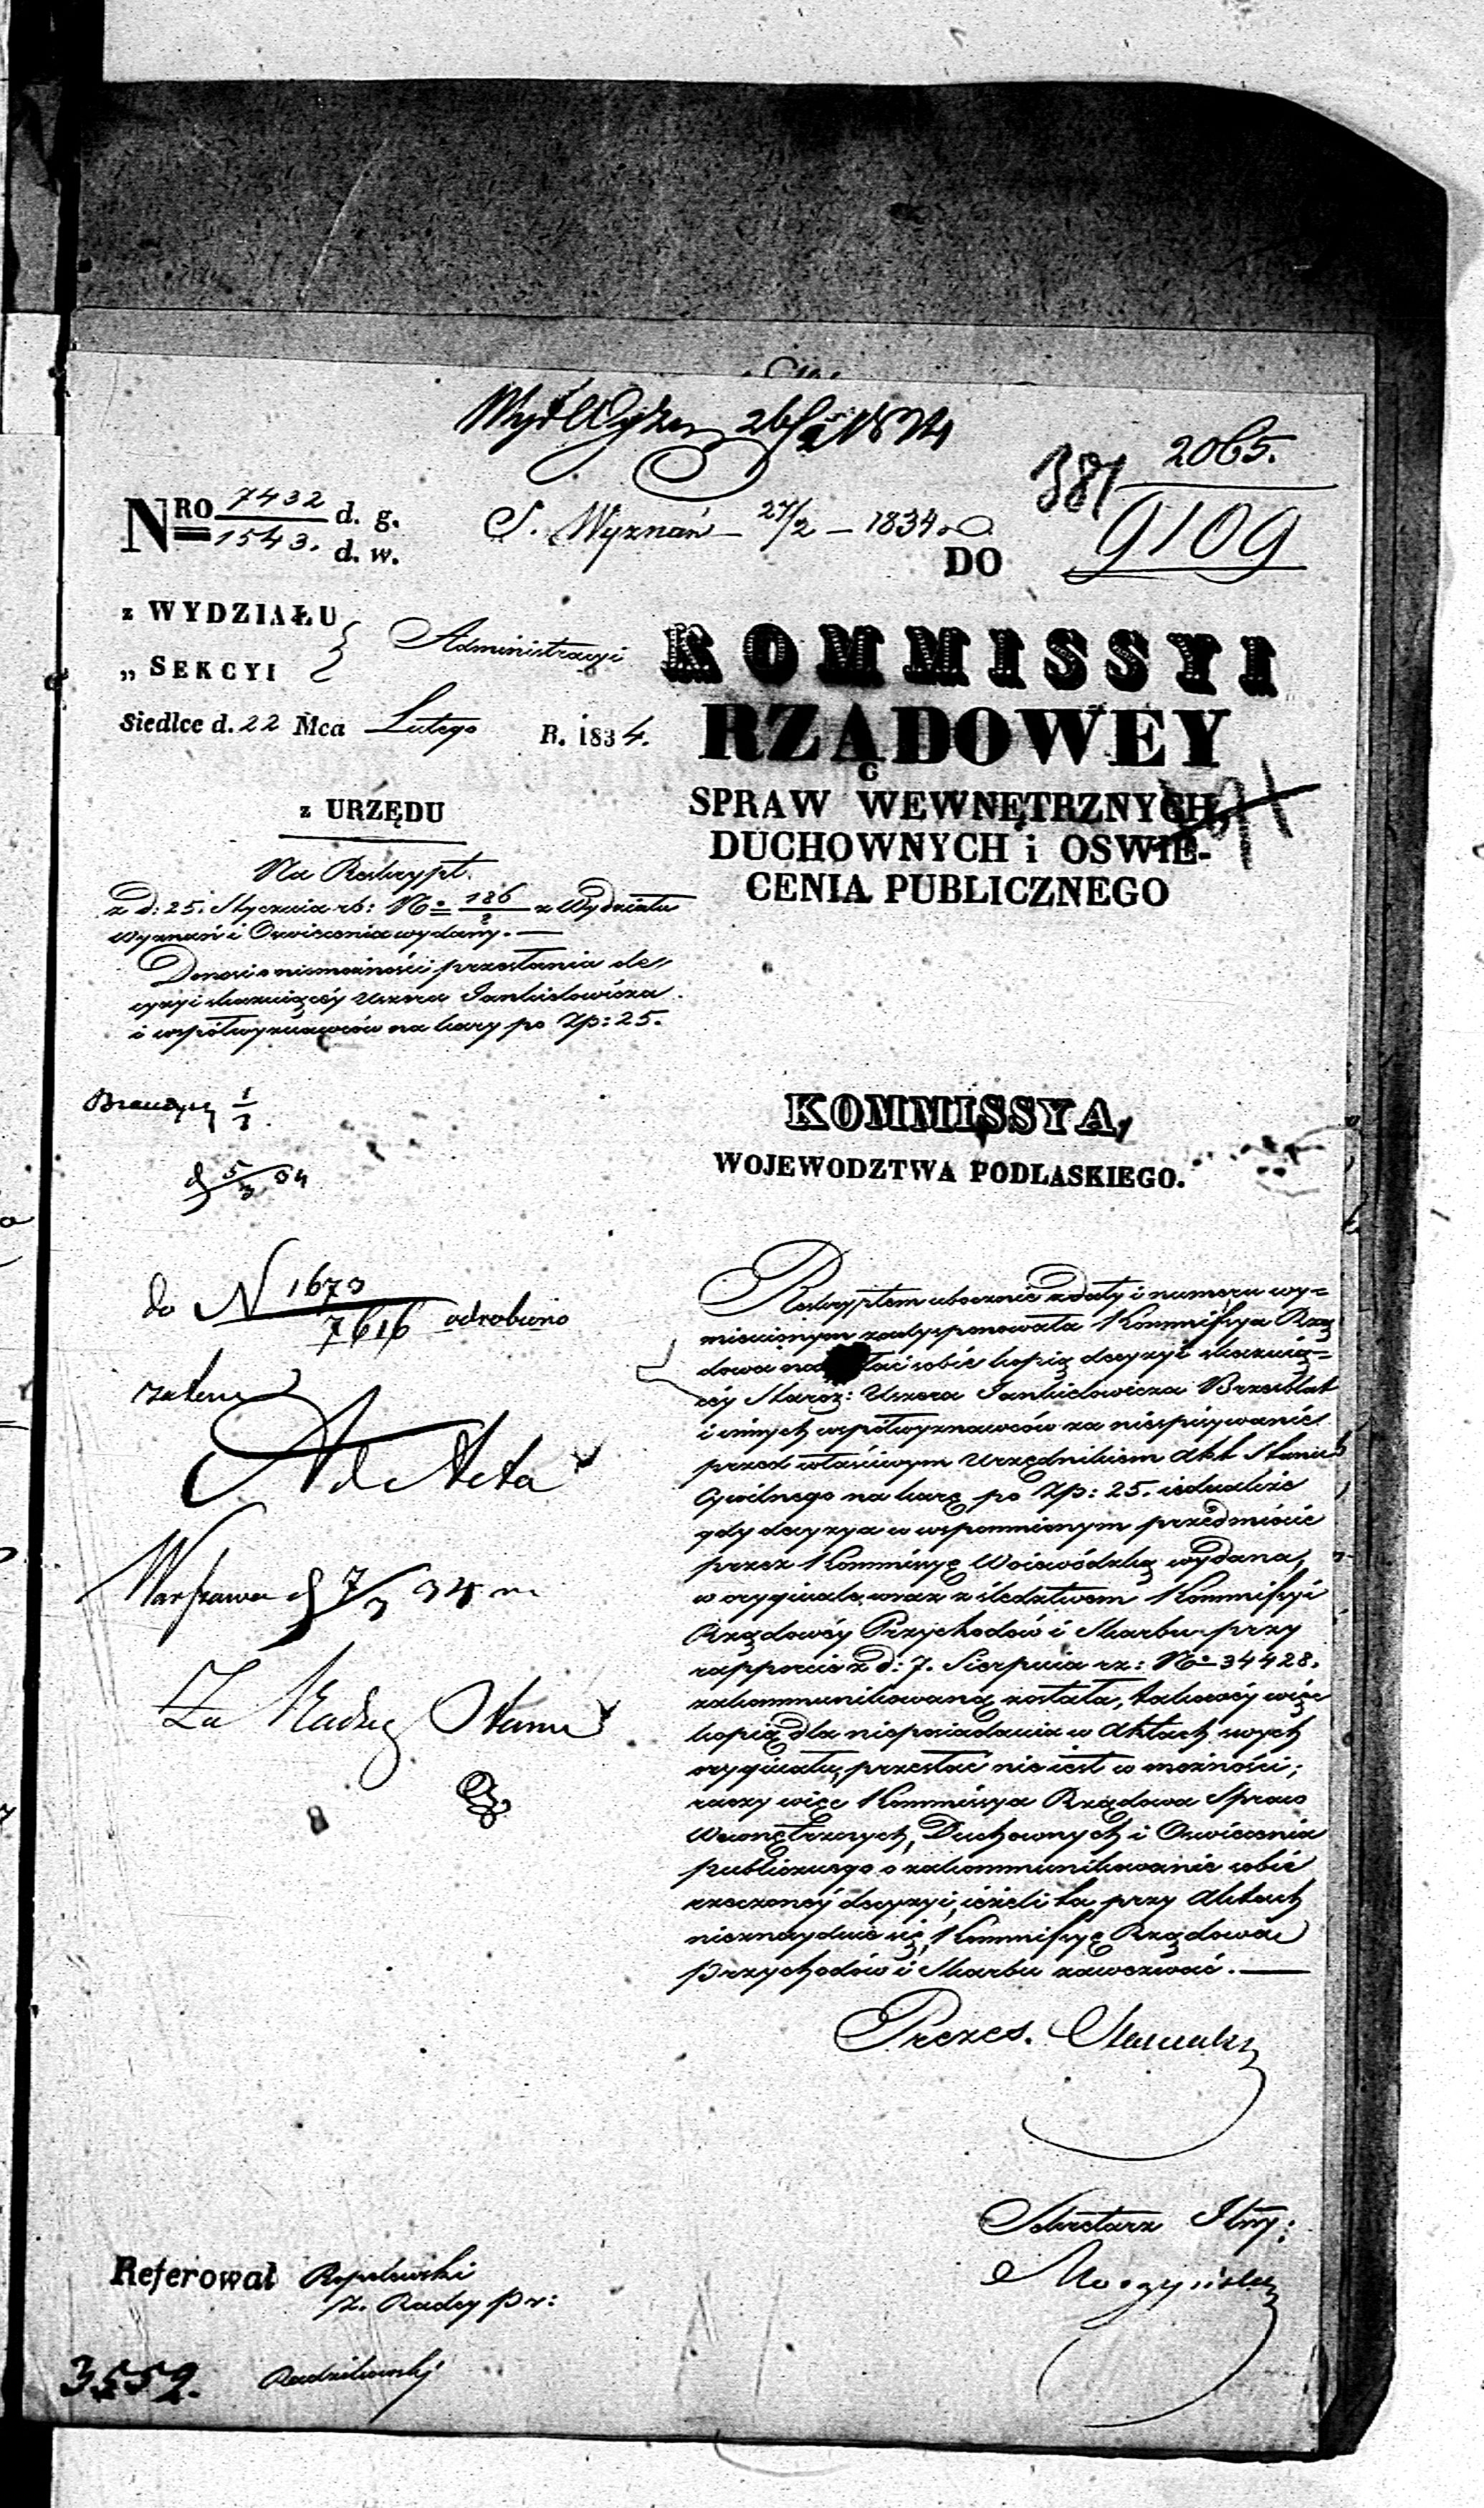 26/2 1834
2065.
381
9109
NRO 7432 d. g.
1543. d. w.
S. Wyznań 27/2 – 1834
DO
z WYDZIAŁU
„ SEKCYI
Administracyi
KOMMISSYI
RZĄDOWEY
SPRAW WEWNĘTRZNYCH,
DUCHOWNYCH i OSWIE-
CENIA PUBLICZNEGO
Siedlce d. 22 Mca Lutego R. 1834.
z URZĘDU
Na Reskrypt.
z d: 25. Stycznia rb: No 186/2 z Wydziału
Wyznań i Oswiecenia wydany. —
Donosi o niemożności przesłania de
cyzyi skazuiącéy Uszera Jankielowicza
i współwyznawców na kary po Zp: 25.
KOMMISSYA,
WOJEWODZTWA PODLASKIEGO.
d 5/3 34
do N 1673
7616 odrobiono
zatem
Ad Acta
Warszawa d 7/3 34 m
Za Radcę Stanu
Reskryptem ubocznie z daty i numeru wy=
mienionym zadysponowała Kommissya Rzą
dowa kopią decyzyi skazuią=
céy Staroz: Uszera Jankielowicza Brzeblat
i innych współwyznawców za niespisywanie
przed właściwym Urzędnikiem Akt Stanu
Cywilnego na karę po Zp: 25. iednakże
gdy decyzya w wspomnionym przedmiocie
przez Kommissyę Woiewódzką wydana,
w oryginale wraz z śledztwem Kommissyi
Rządowéy Przychodów i Skarbu przy
rapporcie z d: 7. Sierpnia rz: No 34428.
zakommunikowaną została, takowéy więc
kopią dla nieposiadania w Aktach swych
oryginału, przesłać nie iest w możności;
raczy więc Kommissya Rządowa Spraw
Wewnętrznych, Duchownych i Oswiecenia
publicznego o zakommunikowanie sobie
rzeczonéy decyzyi, ieżeli ta przy Aktach
nieznayduie się, Kommissyę Rządową
Przychodów i Skarbu zawezwać. —
Prezes.
Sekretarz Jlny:
Referował
z. Radcy Pr:
Radzikowski
3552.